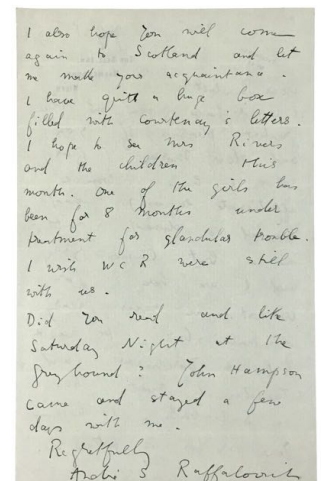 I also hope you will come
again to Scotland and let
me make your acquaintance.
I have quite a huge box
filled with Courtenay's letters.
I hope to see Mrs Rivers
and the children this
month. One of the girls has
been for 8 months under
treatment for glandular trouble.
I wish WCR were still
with us.
Did you read and like
Saturday Night at the
Greyhound? John Hampson
came and stayed a few
days with me.
Regretfully
André S Raffalovich